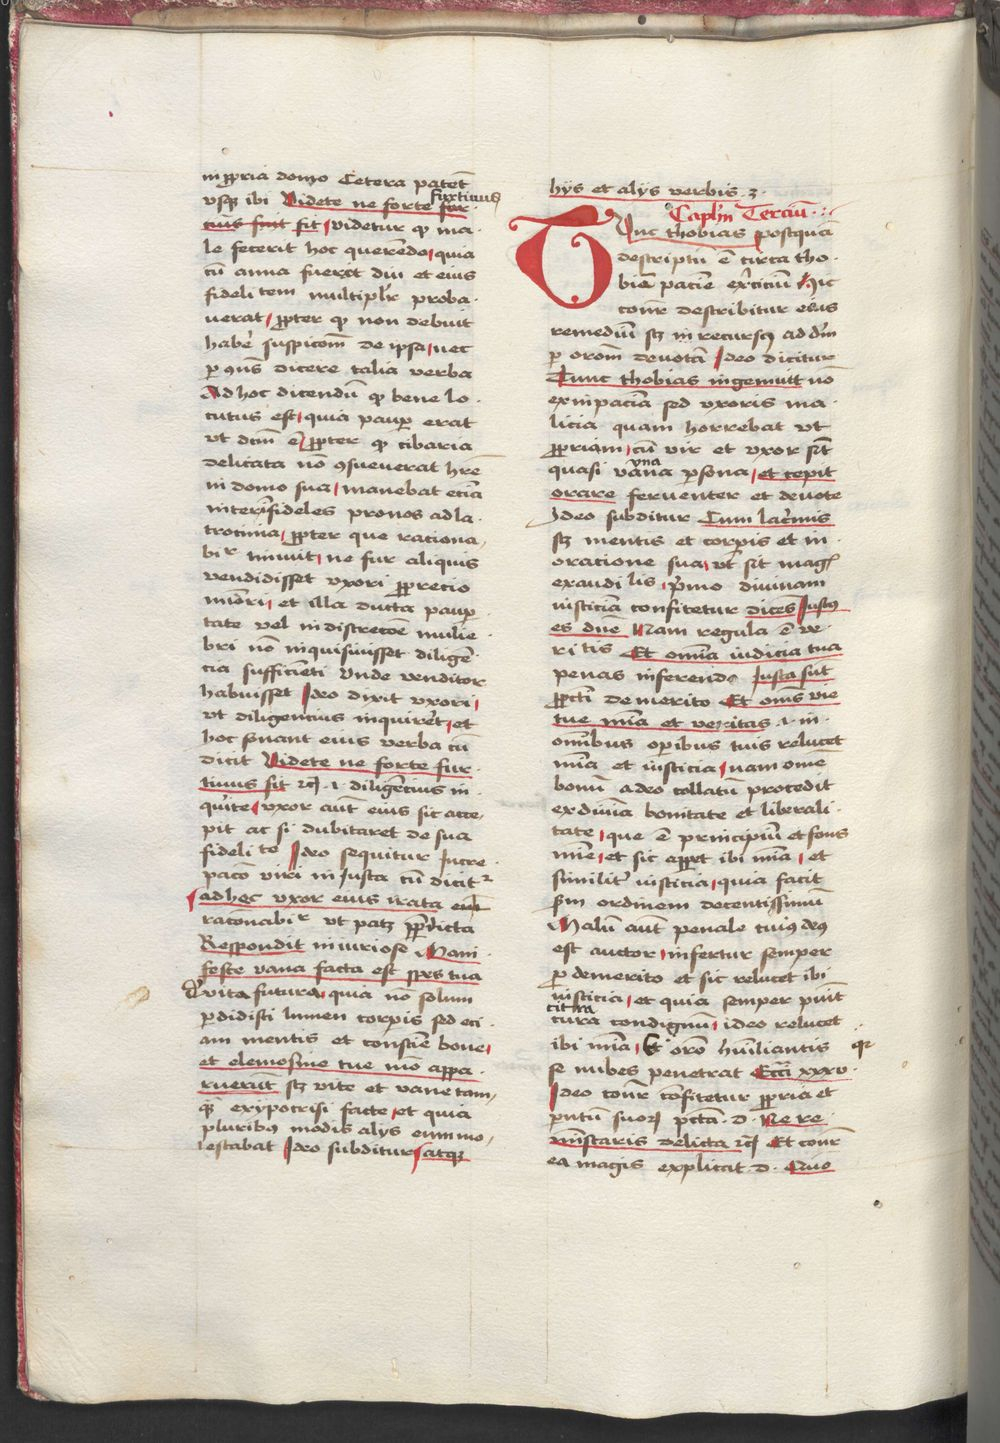 in ꝓpria domo Cetera patẽt
vsqꝫ ibi Videte ne forte fur
furtiuus
tiuus sint sit videtur ꝙ ma-
le fecerit hoc querendo quia
cũ anna fuerat diu et eius
fideli tem multiplr̃ proba-
uerat ꝓpter ꝙ non debuit
habe᷑ suspicom̃ de ipsa nec
ꝑ ꝯñs dicere talia verba
Ad hoc dicendũ ꝙ bene lo-
cutus est quia pauꝑ erat
vt dcm̃ ẽ ꝓpter ꝙ cibaria
delicata nõ ꝯsueuerat hr̃e
in domo sua manebat eciã
inter infideles pronos ad la-
trocinia ꝓpter que raciona-
bir timuit ne fur aliquis
vendidisset vxori ꝓ precio
miõri et illa ducta pauꝑ-
tate vel indiscrecõe mulie-
bri nõ inquisiuisset diligẽ-
cia sufficiẽti vnde venditor
habuisset Ideo dixit vxori
vt diligencius inquire᷑t et
hoc sonant eius verba cũ
dicit Videte ne forte fur-
tiuus sit ⁊c̃ .i. diligencius in-
quirite vxor aut̃ eius sic acce-
pit ac si dubitaret de sua
fideli te Ideo sequitur Incre-
pacõ viri in Iusta cũ dicit᷑
ad hec vxor eius irata eciã
racõnabir vt patꝫ ꝓpt̃ dicta
Respondit iniuriose Mani-
feste vana facta est spes tua
de vita futura quia nõ solum
ꝑdidisti lumen corpis sed eci-
am mentis et conscie᷑ bone
et elemosine tue mõ appa-
ruerũt sꝫ vite et vane tam-
qꝫ ex ypocrisi facte et quia
pluribꝰ modis alys eum mo-
lestabat Ideo subditur atqꝫ
hys et alys verbis .3.
Caplm̃ Terciũ
Tunc thobias postquã
descriptũ ẽ circa tho-
biam pacie᷑ exr̃ciciũ Hic
cõnr̃ describitur eius
remediũ sꝫ in recursꝰ ad dm̃
ꝑ orõm deuotã Ideo dicitur
Tunc thobias ingemuit nõ
ex inpaciã sed vxoris ma-
licia quam horrebat vt
ꝓpriam cũ vir et vxor sĩt
quasi vna
vna ꝑsona et cepit
orare feruenter et deuote
Ideo subditur Cum lac᷑mis
sꝫ mentis et corpis et in
oracione sua vt sit mag᷑
exaudi lis Primo diuinam
iusticiã confitetur dices Iustꝰ
es dñe Nam regula ẽ ve-
ri tis Et omĩa iudicia tua
penas inferendo Iusta sũt
ꝓpt̃ demerito Et om̃s vie
tue mĩa et veritas .i. in
omĩbus operibus tuis relucet
mĩa et iusticia nam omẽ
bonũ a deo collatũ procedit
ex diuĩa bonitate et liberali-
tate que ẽ principiũ et fons
mĩe et sic apparet ibi mĩa et
similit᷑ iusticia quia facit
sm̃ ordinem decentissimũ
Malũ aut̃ penale cuiꝰ deꝰ
est auctor infertur semper
ꝑ demerito et sic relucet ibi
iusticia et quia semper punit
citra
cura condignũ ideo relucet
ibi mĩa Et orõ hũiliantis
se nubes penetrat Ecci xxxv
Ideo cõnr̃ cõfitetur ꝓpria et
pñtũ suoꝝ pctã .d. Ne re-
mĩscaris delicta ⁊c̃ Et cõnr̃
ea magis explicat .d. Quo